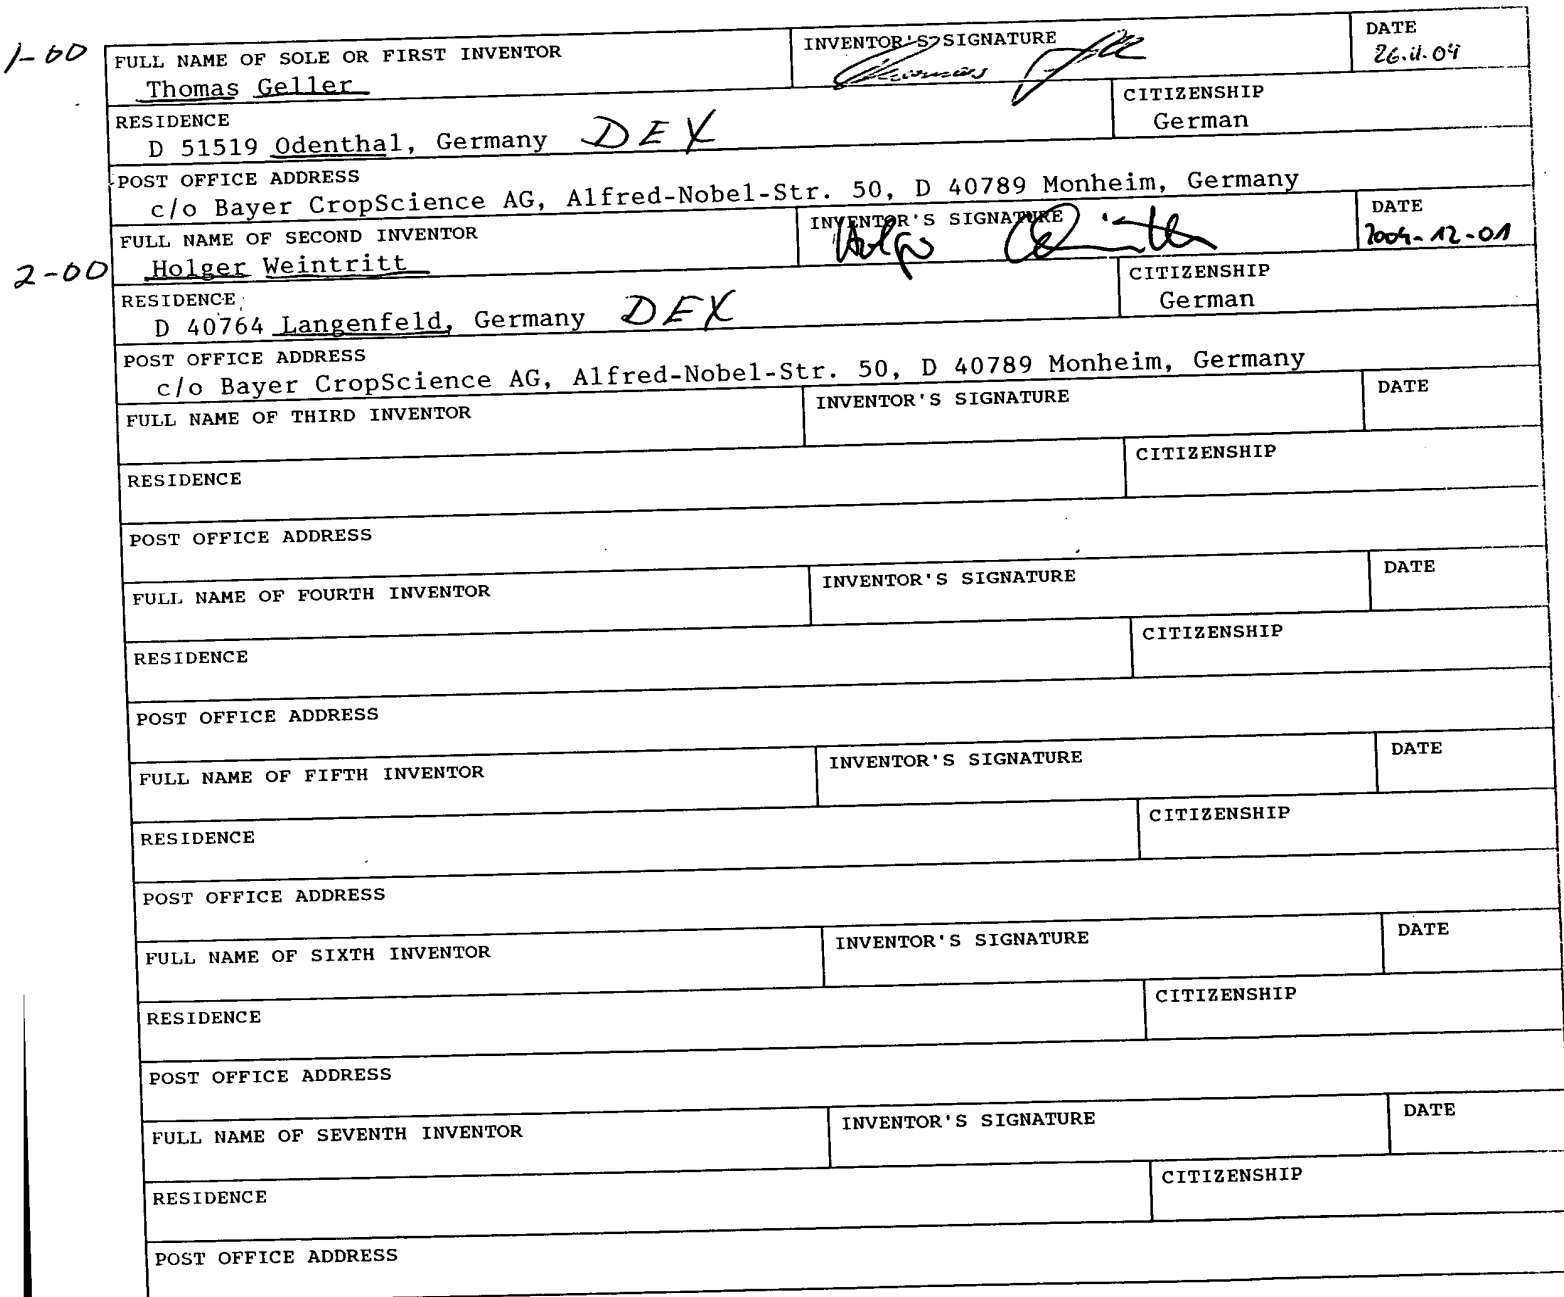 1-00
FULL NAME OF SOLE OR FIRST INVENTOR INVENTOR'S SIGNATURE DATE
Thomas Geller Thomas 26.11.04
RESIDENCE CITIZENSHIP
D 51519 Odenthal, Germany DEX German
POST OFFICE ADDRESS
c/o Bayer CropScience AG, Alfred-Nobel-Str. 50, D 40789 Monheim, Germany
FULL NAME OF SECOND INVENTOR INVENTOR'S SIGNATURE DATE
2-00 Holger Weintritt Holger 2004-12-01
RESIDENCE CITIZENSHIP
D 40764 Langenfeld, Germany DEX German
POST OFFICE ADDRESS
c/o Bayer CropScience AG, Alfred-Nobel-Str. 50, D 40789 Monheim, Germany
FULL NAME OF THIRD INVENTOR INVENTOR'S SIGNATURE DATE
RESIDENCE CITIZENSHIP
POST OFFICE ADDRESS
FULL NAME OF FOURTH INVENTOR INVENTOR'S SIGNATURE DATE
RESIDENCE CITIZENSHIP
POST OFFICE ADDRESS
FULL NAME OF FIFTH INVENTOR INVENTOR'S SIGNATURE DATE
RESIDENCE CITIZENSHIP
POST OFFICE ADDRESS
FULL NAME OF SIXTH INVENTOR INVENTOR'S SIGNATURE DATE
RESIDENCE CITIZENSHIP
POST OFFICE ADDRESS
FULL NAME OF SEVENTH INVENTOR INVENTOR'S SIGNATURE DATE
RESIDENCE CITIZENSHIP
POST OFFICE ADDRESS